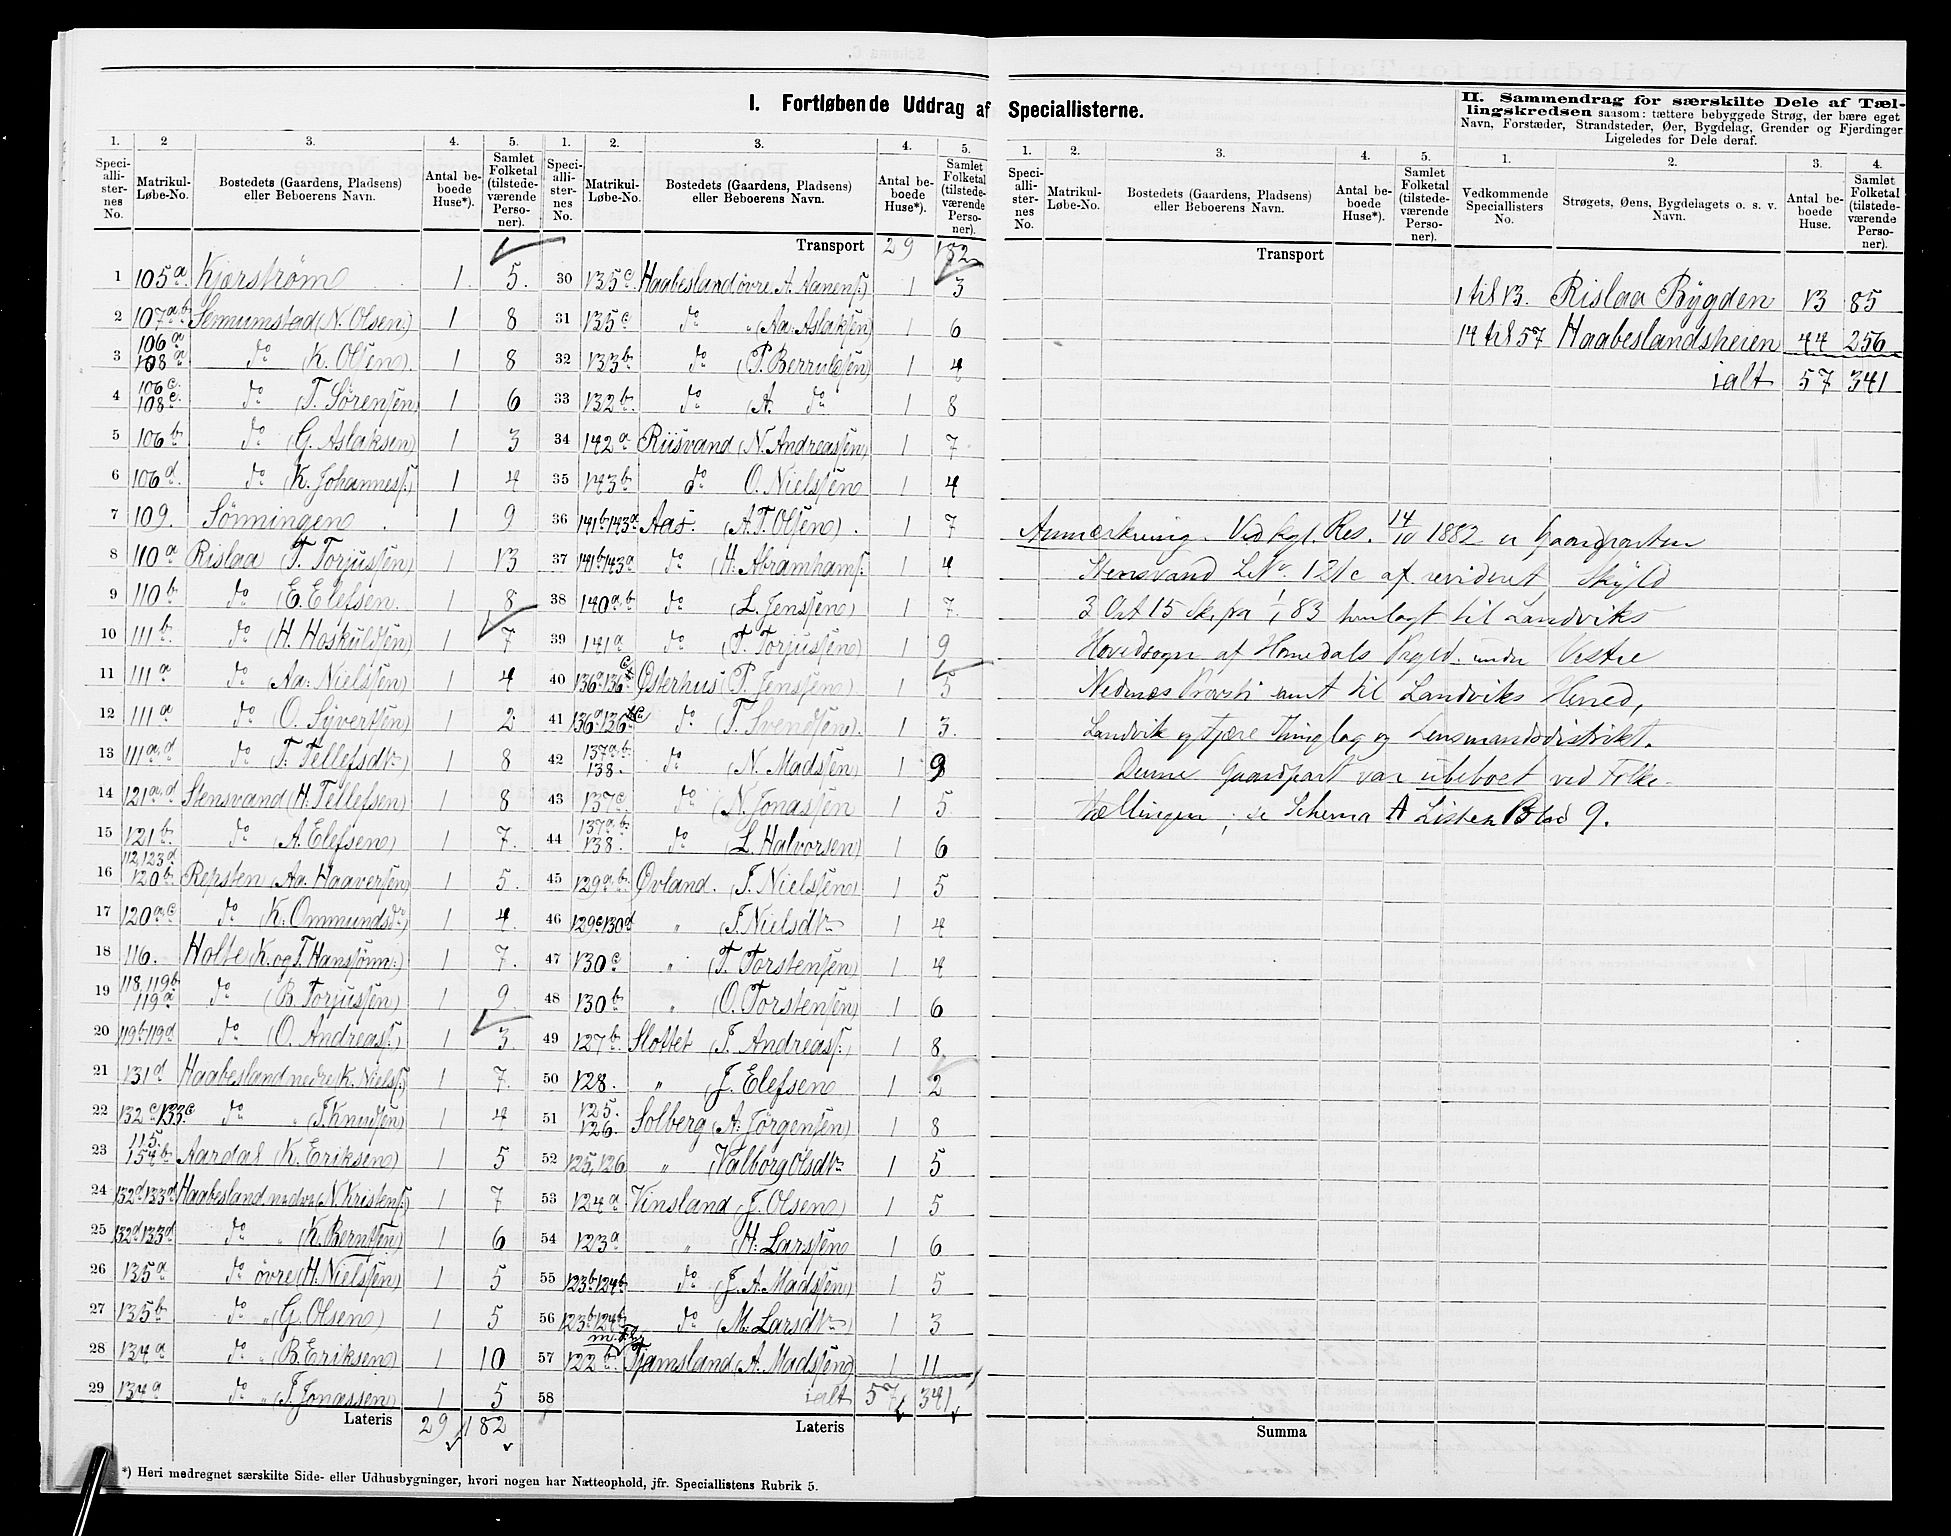 I. Fortløbende Uddrag af Speciallisterne.
1. 2 3. 4. 5.
Speciallisternes No. Matrikul-Løbe-No. Bostedets (Gaardens, Pladsens) eller Beboerens Navn. Antal beboede Huse*). Samlet Folketal (tilstedeværende Personer).
1 105a Kjørstrøm 1 5.
2 107a,b Semumstad (N. Olsen) 1 8
3 106a 108a do (K. Olsen) 1 8
4 106c 108c do (T. Sørensen) 1 6
5 106b do (G. Aslaksen) 1 3
6 106d do (K. Johanness:) 1 4
7 109. Sønningen 1 9
8 110a Rislaa (T. Torjussen) 1 13
9 110b do (E. Elefsen. 1 8
10 111b do (H. Hoskuldsen) 1 7
11 111a do (Aa: Nielssen) 1 4
12 111a do (O. Syvertsen) 1 2
13 111a,d do (T. Tellefsdtr) 1 8
14 121a,d Stensvand (H. Tellefsen) 1 8
15 121b do (A. Elefsen) 1 7.
16 112,123d 120b Repsten (Aa. Haaversen) 1 5.
17 120a,c do (K. Ommundsdr) 1 4.
18 116. Holte (K. og T. Hanssønn:) 1 7.
19 118,119b 119a do (B. Torjussen) 1 9
20 119b 119d do (O. Andreass:) 1 3.
21 131d Haabesland nedre (K. Nielss:) 1 7
22 132c 133c do " (T. Knudsen) 1 4
23 115. 154b Aardal (K. Eriksen) 1 5
24 132d 133d Haabesland nedre (N. Kristens:) 1 7
25 132d 133d do " (K. Berntsen) 1 6
26 135a do øvre (H. Nielssen) 1 5
27 135b do " (G. Olsen) 1 5
28 134a do " (B. Eriksen) 1 10
29 134a do " (T. Jonassen) 1 5
Lateris 29 182
*) Heri medregnet særskilte Side- eller Udhusbygninger, hvori nogen har Natteophold, jfr. Speciallistens Rubrik 5.
1. 2. 3. 4. 5.
Speciallisternes No. Matrikul-Løbe-No. Bostedets (Gaardens, Pladsens) eller Beboerens Navn. Antal beboede Huse*). Samlet Folketal (tilstedeværende Personer).
Transport 29 182
30 135c Haabesland øvre (A. Aanens:) 1 3
31 135c do " (Aa. Aslaksen) 1 6
32 133b do (P. Berrulfsen) 1 4
33 132b do (A. do 1 8
34 142a Riisvand (N. Andreassen) 1 7
35 143b do O. Nielssen 1 4
36 141b 143a Aas. (A. T. Olsen) 1 7
37 141b 143a do (H. Abramhams: 1 4
38 140a,b do (L. Jenssen) 1 7
39 141a do (T. Torjussen) 1 9
40 136a 136c Østerhus (P. Jenssen) 1 5
41 136a 136c do (T. Svendsen) 1 3.
42 137a,b 138. do (N. Madssen) 1 9
43 137c. do (N. Jonassen 1 5
44 137a,b 138. do (L. Halvorsen) 1 6
45 129a,b Øvland. (T. Nielssen) 1 5
46 129c 130d " (T. Nielsdtr 1 4
47 130c " (T. Torstensen) 1 4
48 130b " (O. Torstensen) 1 6
49 127b Slottet (T. Andreass:) 1 8
50 128. " (J. Elefsen) 1 2
51 125. 126. Solberg (A. Jørgensen) 1 8
52 125, 126 " (Valborg Olsdtr 1 5
53 124a Vinsland (J. Olsen) 1 5
54 123a " (H. Larssen 1 6
55 123b 124b do (J. A. Madssen) 1 5
56 123b 124b do (M. Larsdtr) 1 3
57 122b Tjamsland (A. Madssen) 1 11
58 ialt 57 341
Lateris
1. 2. 3. 4. 5.
Speciallisternes No. Matrikul-Løbe-No. Bostedets (Gaardens, Pladsens) eller Beboerens Navn. Antal beboede Huse*). Samlet Folketal (tilstedeværende Personer).
Transport
Anmærkning. Ved kgl. Res. 14/10 1882 er Gaardparten
Stensvand L.No. 121c af revideret Skyld
3 Ort 15 Sk. fra 1/1 83 henlagt til Landviks
Hovedsogn af Homedals Prgld. under Vestre
Nedenæs Provsti samt til Landviks Herred,
Landvik og Fjære Thinglag og Lensmandsdistrikt.
Denne Gaardpart var ubeboet ved Folke-
tællingen, se Schema A Listen Blad 9.
Summa
II. Sammendrag for særskilte Dele af Tællingskredsen saasom: tættere bebyggede Strøg, der bære eget
Navn, Forstæder, Strandsteder, Øer, Bygdelag, Grender og Fjerdinger
Ligeledes for Dele deraf.
1. 2. 3. 4.
Vedkommende Speciallisters No. Strøgets, Øens, Bygdelagets o. s. v. Navn. Antal beboede Huse. Samlet Folketal (tilstedeværende Personer).
1 til 13. Rislaa Bygden 13 85
14 til 57 Haabeslandsheien 44 256
ialt 57 341